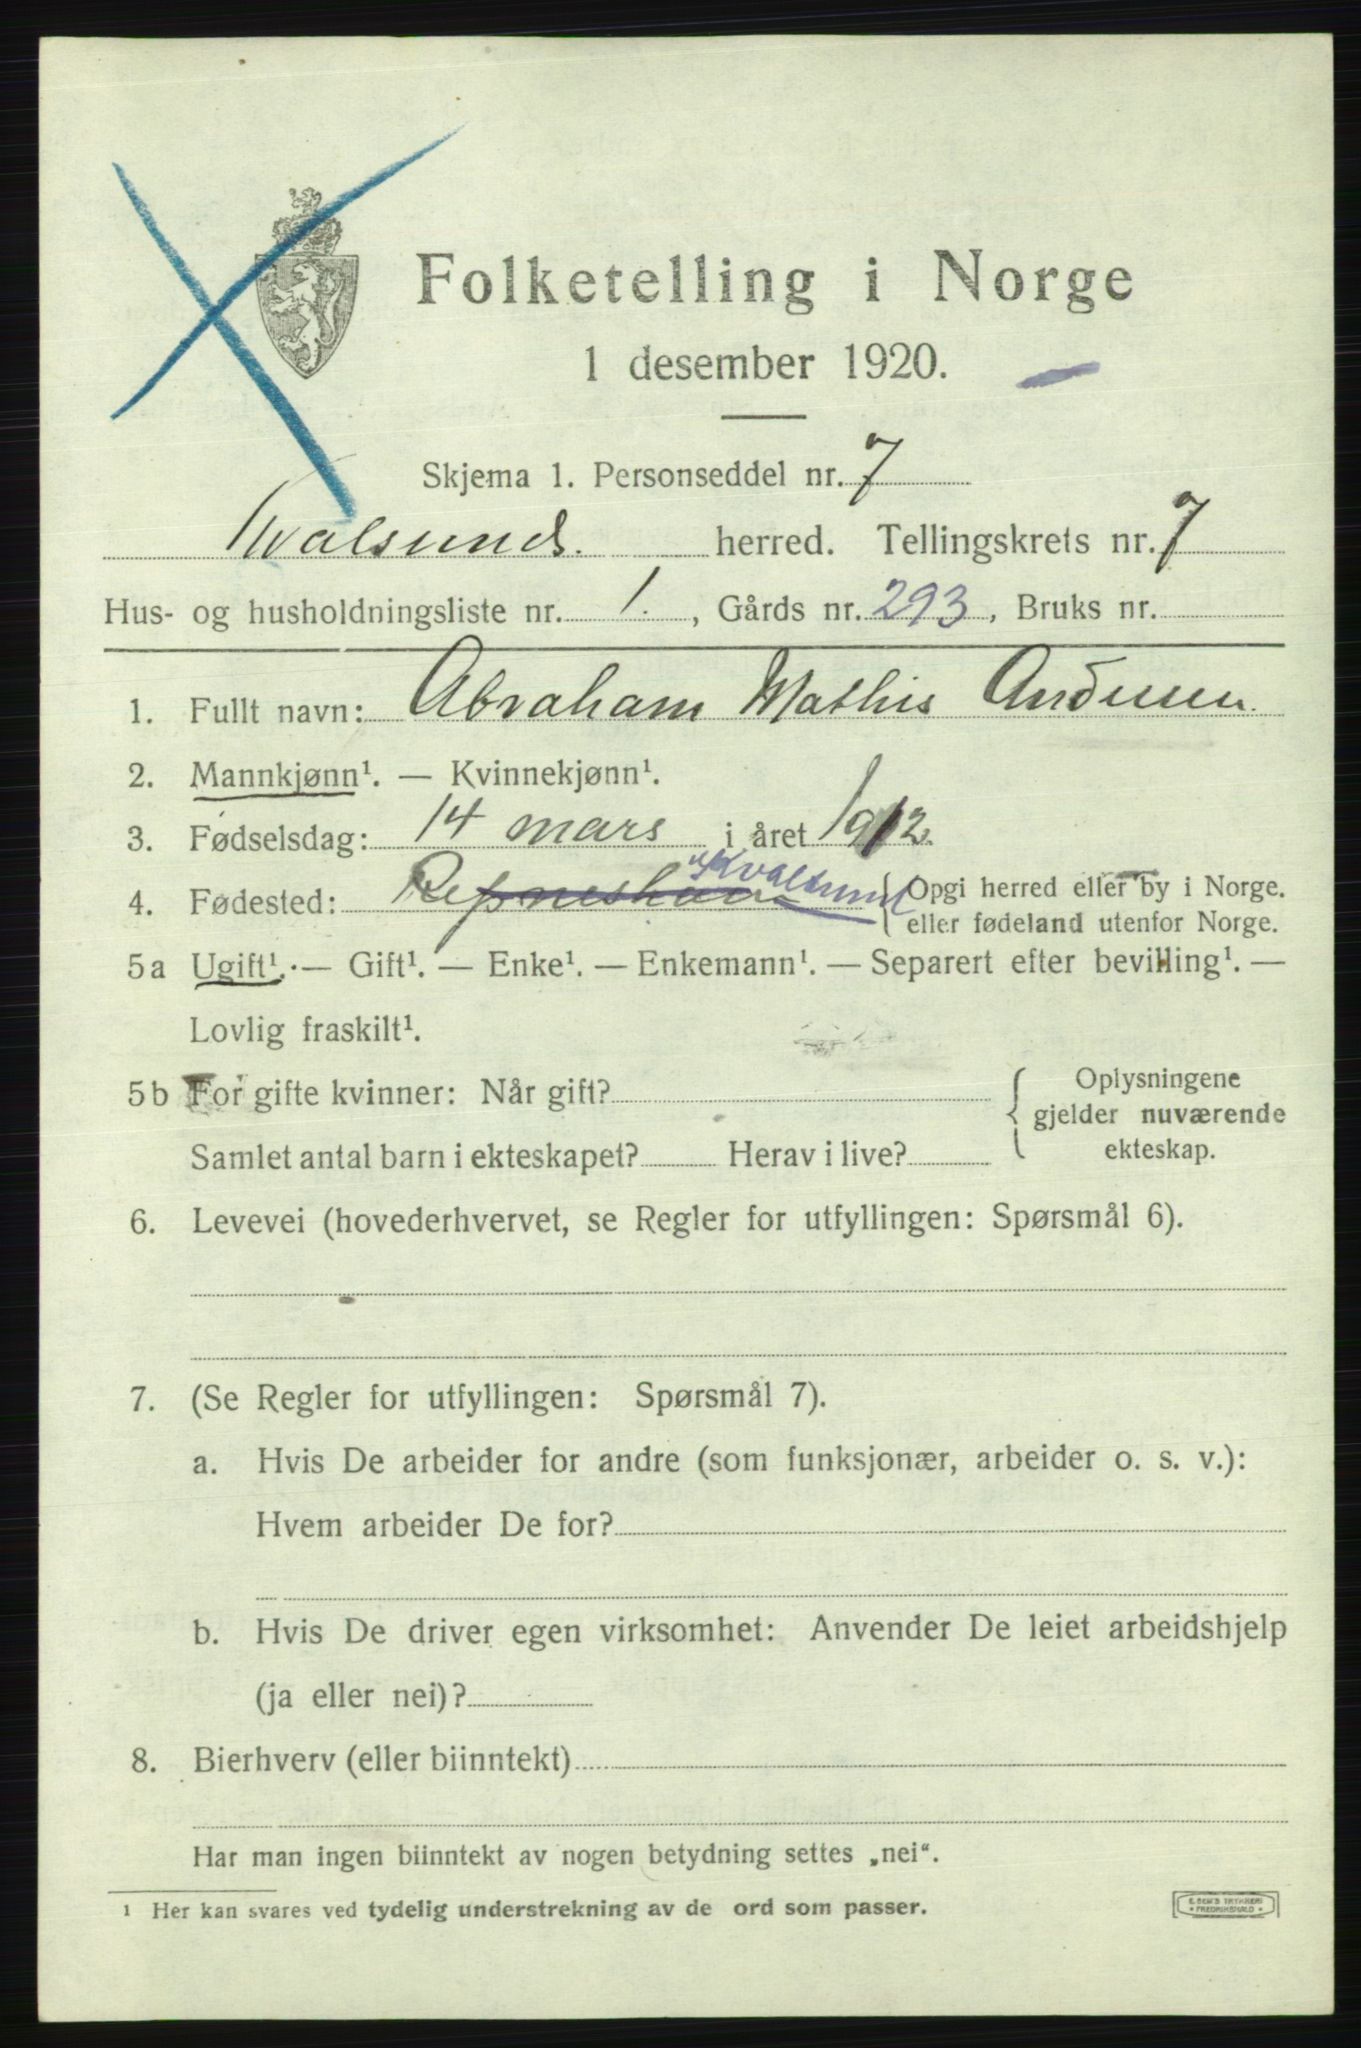 Folketelling i Norge
1 desember 1920.
Skjema 1. Personseddel nr. 7
Kvalsund herred. Tellingskrets nr. 7
Hus- og husholdningsliste nr. 1. , Gårds nr. 293, Bruks nr.
1. Fullt navn: Abraham Mathis Andersen
2. Mannkjønn¹. — Kvinnekjønn¹.
3. Fødselsdag: 14 mars i året 1912.
4. Fødested: Kvalsund { Opgi herred eller by i Norge.
eller fødeland utenfor Norge.
5a Ugift¹. — Gift¹. — Enke¹. — Enkemann¹. — Separert efter bevilling¹. —
Lovlig fraskilt¹.
5b For gifte kvinner: Når gift? { Oplysningene
gjelder nuværende
Samlet antal barn i ekteskapet? Herav i live? ekteskap.
6. Levevei (hovederhvervet, se Regler for utfyllingen: Spørsmål 6).
7. (Se Regler for utfyllingen: Spørsmål 7).
a. Hvis De arbeider for andre (som funksjonær, arbeider o. s. v.):
Hvem arbeider De for?
b. Hvis De driver egen virksomhet: Anvender De leiet arbeidshjelp
(ja eller nei)?
8. Bierhverv (eller biinntekt)
Har man ingen biinntekt av nogen betydning settes „nei“.
¹ Her kan svares ved tydelig understrekning av de ord som passer.
E. SEM'S TRYKKERI
• FREDRIKSHALD •